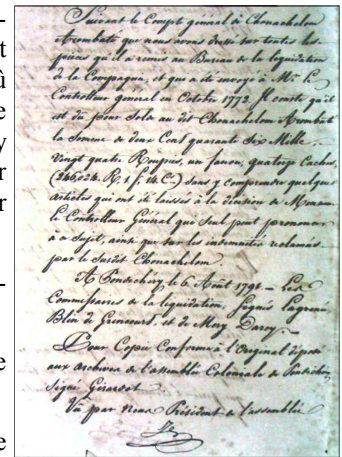 Suivant le Compte général de Chonachelon
Arombaté que nous avons dressé sur toutes les
pièces qu'il a remis au Bureau de la liquidation
de la Compagnie, et qui a été envoyé à Mr. le
Controlleur général en Octobre 1772. Il conste qu'il
est du pour Solde au dit Chonachelon Arombaté
la Somme de deux Cent quarante Six Mille
vingt quatre Roupies, un fanon, quatorze Caches,
(246,024. R. 1 f. 14. C.) sans y comprendre quelques
articles qui ont été laissés à la décision de
le Controlleur Général qui seul peut prononcer
à ce Sujet, ainsi que sur les indemnités réclamés
par le Susdit Chonachelon.
A Pondichery le 6 Août 1791 – Les
Commissaires de la liquidation, Signés Lagrenée
Blin de Grincourt, et de Mery Darcy.
Pour Copie Conforme à l'Original déposé
aux Archives de l'assemblée Coloniale de Pondichery
signé Girardot.
Vû par Nous Président de l'assemblée
t
ù
e
y
r
r
e
e